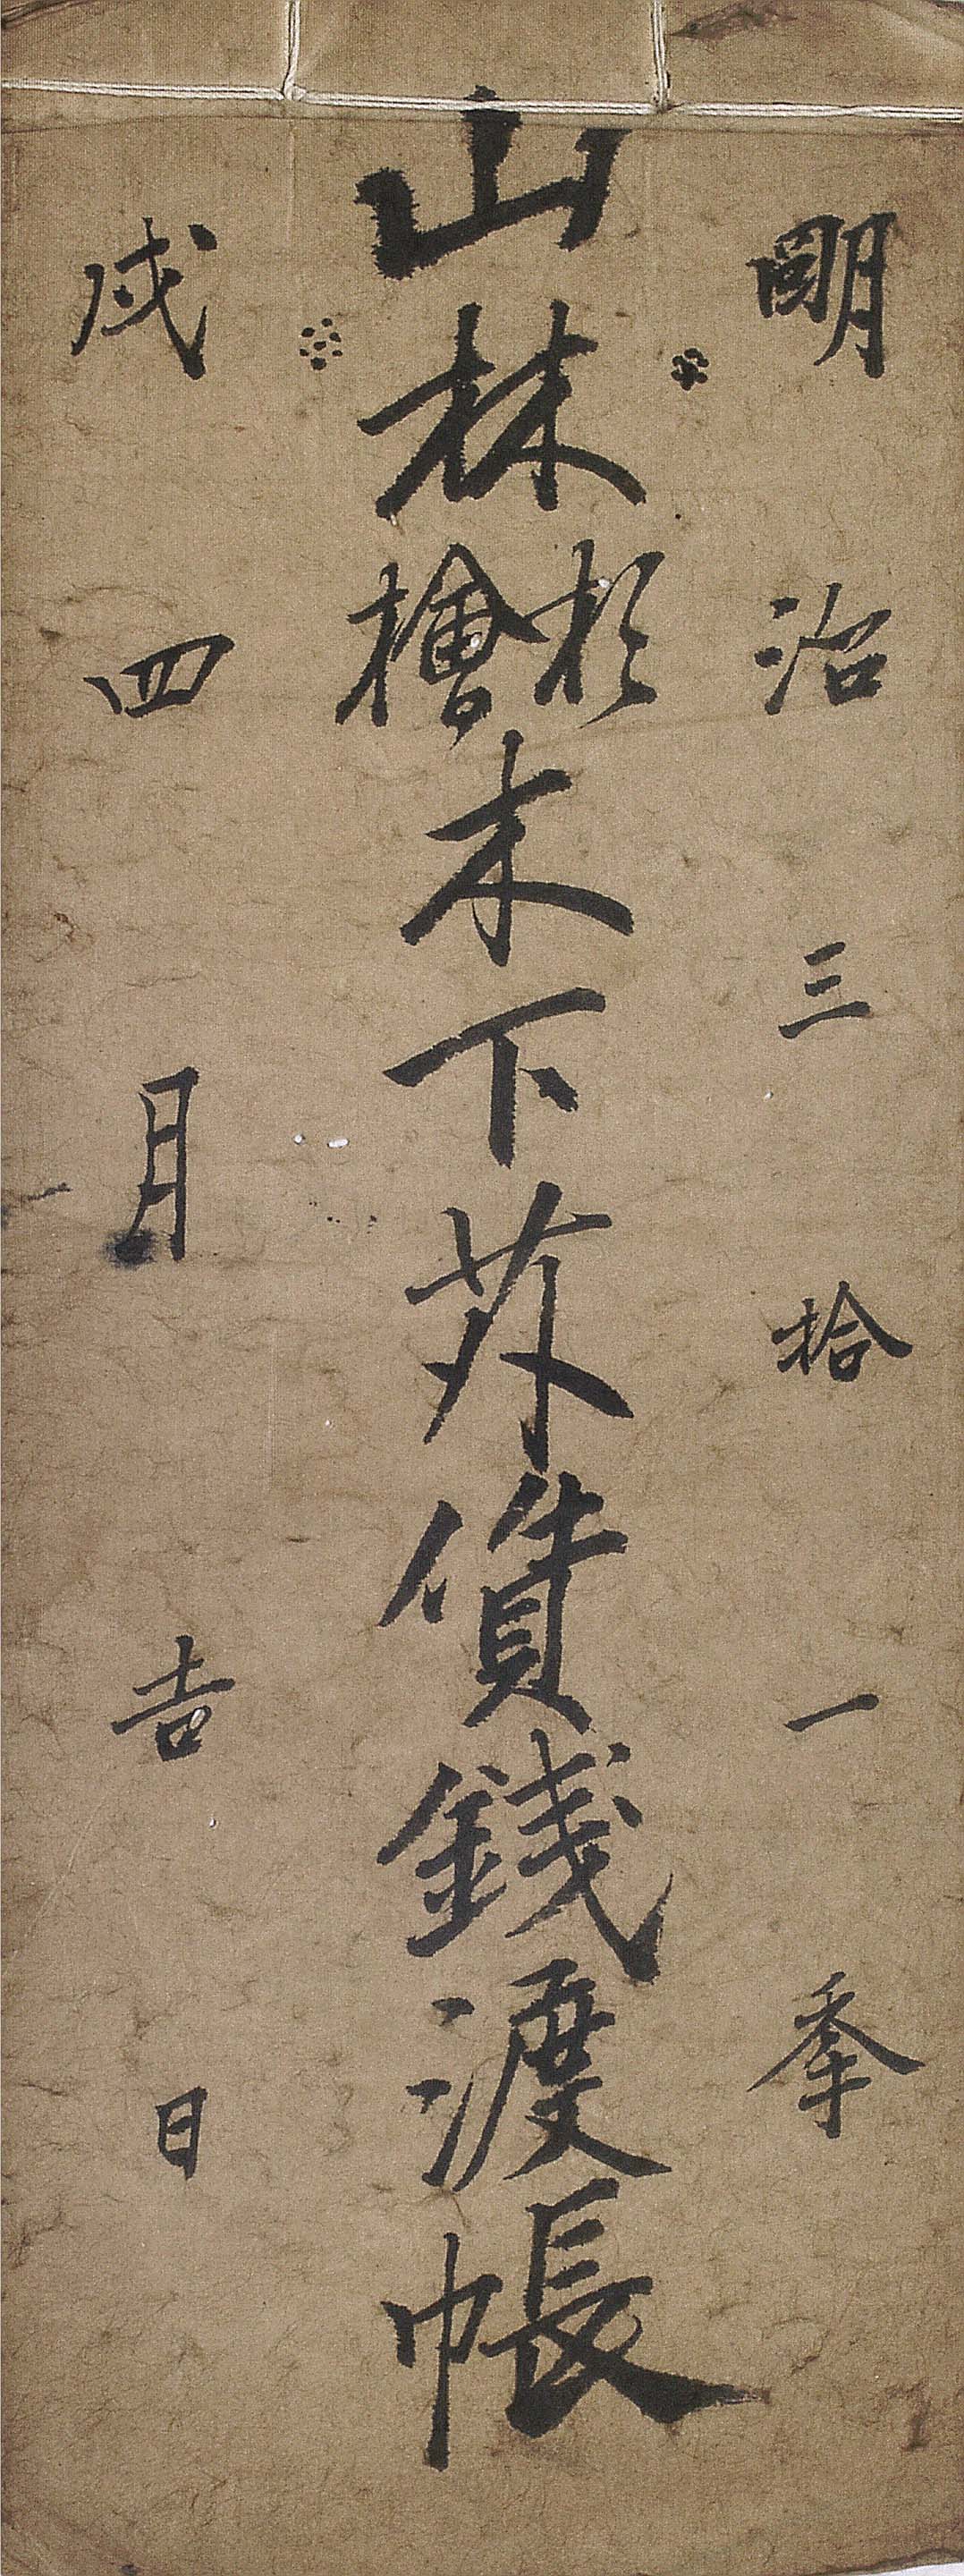 明治三拾一秊
山林杉檜木下苅賃錢渡帳
戌四月吉日